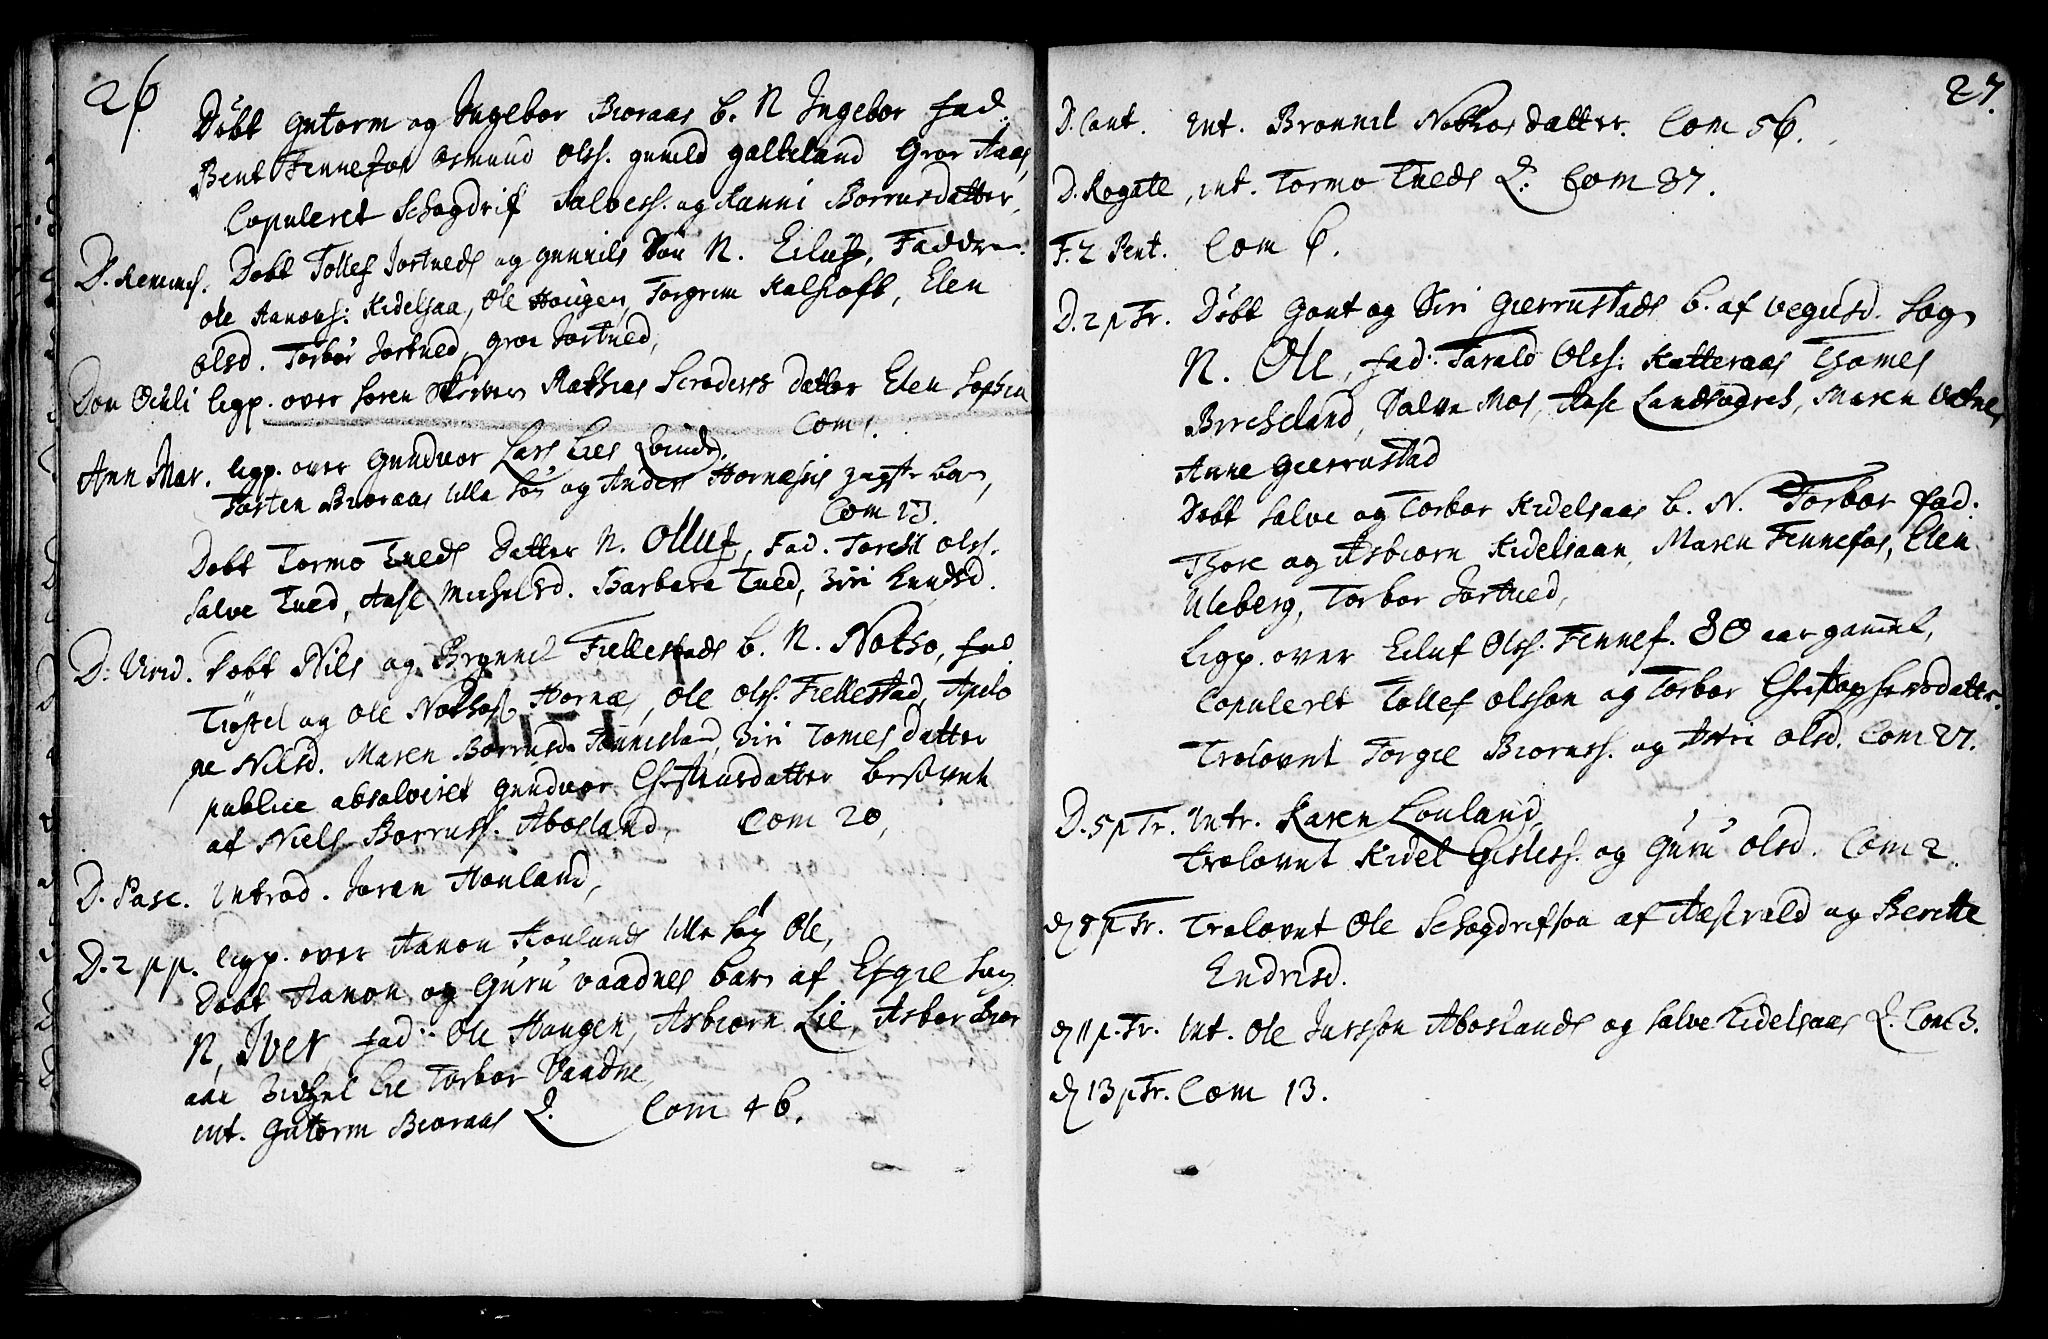 26
Döbt Gutorm og Ingebor Bioraas b. N Ingebor fad.
Bent Fennefos Osmund Olss. gunild galteland Groe Aaas,
Copuleret Schogdrif Salvess. og Hanni Borrusdatter,
D. Remins. Dobt Tollef Jortveds og gunnils Sön N. Eiluf, Faddre
ole Aanons: Kidelsaa, Ole Haugen, Torgrim Kalhoft, Elen
olsd. Torbor Jortved, groe Jortved,
Dom Oculi ligp. over Soren Skriver Mathias Scroders datter Elen Sophia
Com 1.
Ann Mar. ligp. over Gunduor Lars Lies Qvinde,
Tosten Bioraas lille sön og Anders Hornæsis yngste barn,
Com 13.
Dobt Tormo Tveds Datter N. Olluf, Fad. Torchil olss.
Salve Tved, Aase Michelsd. Barbara Tved, Siri Knudsd.
D. Virid. Dobt Nils og Brynnil Fiellestads b. N. Notho, fad
Tröstel og Ole Nothoss. Hornæs, Ole Olss. Fiellestad, Apelo
ne Nilsd. Maren Borrusd. Honnisland, Siri Tomes datter
publice absolveret Gunduor Christensdatter besovet
af Niels Borruss. Abosland, Com 20,
D. Pasc. Introd. Joran Honland,
D. 2 pp. ligp. over Aanon Honlands lille sön Ole,
Dobt Aanon og Guru vaadnes barn af Efgie Sogn
N, Iver, fad: Ole Haugen, Asbiorn Lie, Asbor Bior
aas Lie Torbor Vaadne,
int. Gutorm Bioraas Q. Com 46.
27.
D. Cant. Int. Bronnil Nothos datter. Com 56.
D. Rogate, int. Tormo Tveds Q. Com 37.
F. 2 Pent. Com 6.
D. 2 p Tr. Döbt Gont og Siri Gierrustads b. af vegusd. Sogn
N. Ole, fad: Tarald Olss: Katteraas Thomes
Bircheland, Salve Mos, Aase Landsogreh, Maren Vatne,
Anne Gierrustad
Dobt Salve og Torbor Kidelsaas b. N. Torbor fad.
Thore og Asbiorn Kidelsaan, Maren Fennefos, Elen
Uleberg, Torbor Jortved,
Ligp. over Eiluf Olss. Fennef. 80 aar gammel,
Copuleret Tollef olsson og Torbor Christophersdatter.
Trolovet Torgie Biornss. og Siri olsd. Com 27.
D. 5 p Tr. Intr. Karen Louland,
Trolovet Kidel Gisless. og Guru olsd. Com 2.
D 8 p Tr. Trolovet Ole Schogdrifson af Aastvald og Beritte
Endrisd.
D 11 p. Tr. Int. Ole Jnsson Aboslands og Salve Kidelsaas Q. Com 3.
D 13 p Tr. Com 13.